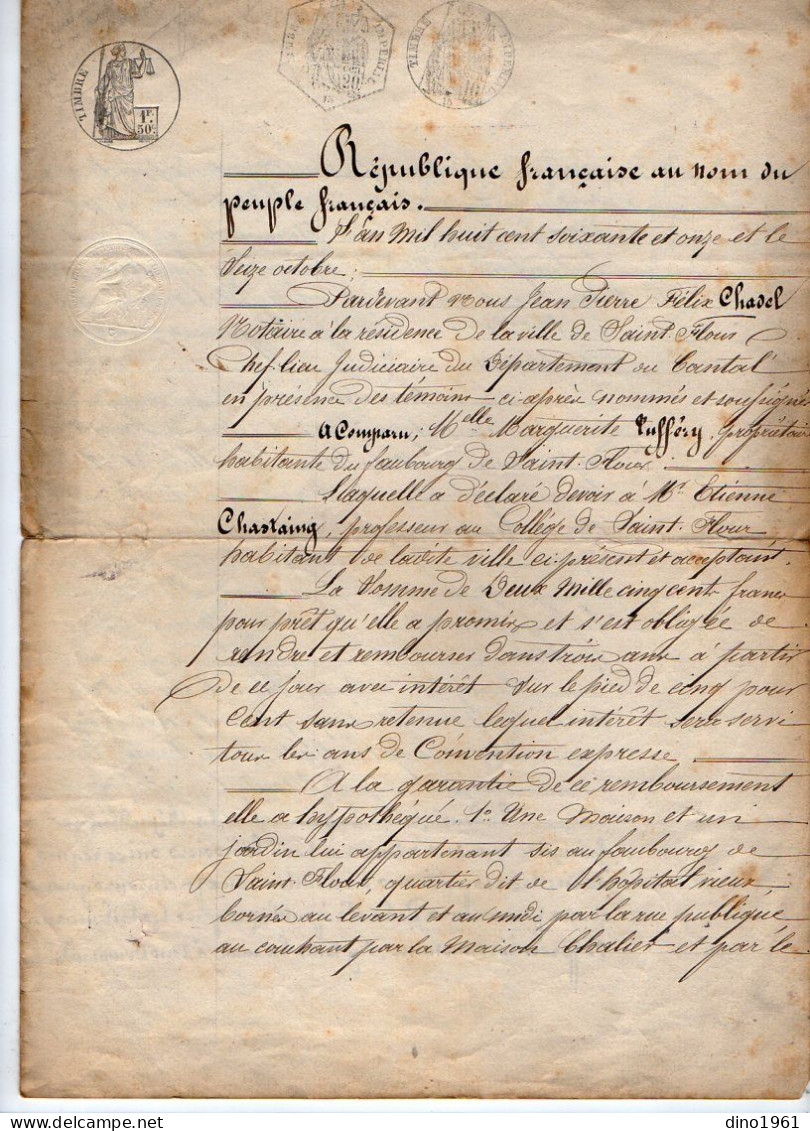 TIMBRE
1F.
50c.
TIMBRE IMPERIAL
TIMBRE IMPERIAL
République française au nom du
peuple français.
L'an Mil huit cent soixante et onze et le
Seize octobre;
Pardevant Nous Jean Pierre Félix Chadel
Notaire à la résidence de la ville de Saint-Flour
Chef-lieu Judiciaire du Département du Cantal
en présence des témoins ci-après nommés et soussignés
A Comparu; Melle Marguerite Tufféry, propriétaire
habitante du faubourg de Saint-Flour.
Laquelle a déclaré devoir à Mr. Etienne
Chastaing, professeur au Collége de Saint-Flour,
habitant de ladite ville ci-présent et acceptant.
La Somme de Deux Mille cinq cents francs
pour prêt qu'elle a promis et s'est obligée de
rendre et rembourser dans trois ans à partir
de ce jour avec intérêt sur le pied de cinq pour
Cent sans retenue lequel intérêt sera servi
tous les ans de Convention expresse.
A la garantie de ce remboursement
elle a hypothéqué. 1o. Une Maison et un
jardin lui appartenant sis au faubourg de
Saint-Flour, quartier dit de l'hôpital vieux,
bornés au levant et au midi par la rue publique
au couchant par la Maison Chalier et par le
dino1961